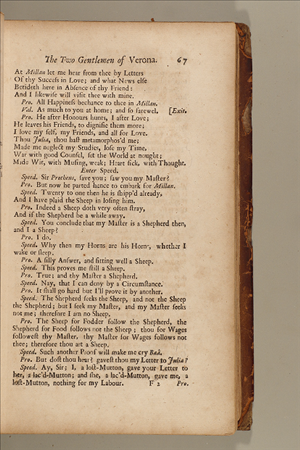 The Two Gentlemen of Verona. 67
At Millan let me hear from thee by Letters
Of thy Success in Love; and what News else
Betideth here in Absence of thy Friend:
And I likewise will visit thee with mine.
Pro. All Happiness bechance to thee in Millan.
Val. As much to you at home; and so farewel. [Exit.
Pro. He after Honours hunts, I after Love;
He leaves his Friends, to dignifie them more;
I love my self, my Friends, and all for Love.
Thou Julia, thou hast metamorphos'd me;
Made me neglect my Studies, lose my Time,
War with good Counsel, set the World at nought;
Made Wit, with Musing, weak; Heart sick, with Thought.
Enter Speed.
Speed. Sir Protheus, save you; saw you my Master?
Pro. But now he parted hence to embark for Millan.
Speed. Twenty to one then he is shipp'd already,
And I have plaid the Sheep in losing him.
Pro. Indeed a Sheep doth very often stray,
And if the Shepherd be a while away.
Speed. You conclude that my Master is a Shepherd then,
and I a Sheep?
Pro. I do.
Speed. Why then my Horns are his Horns, whether I
wake or sleep.
Pro. A silly Answer, and fitting well a Sheep.
Speed. This proves me still a Sheep.
Pro. True; and thy Master a Shepherd.
Speed. Nay, that I can deny by a Circumstance.
Pro. It shall go hard but I'll prove it by another.
Speed. The Shepherd seeks the Sheep, and not the Sheep
the Shepherd; but I seek my Master, and my Master seeks
not me; therefore I am no Sheep.
Pro. The Sheep for Fodder follow the Shepherd, the
Shepherd for Food follows not the Sheep; thou for Wages
followest thy Master, thy Master for Wages follows not
thee; therefore thou art a Sheep.
Speed. Such another Proof will make me cry Baâ.
Pro. But dost thou hear? gavest thou my Letter to Julia?
Speed. Ay, Sir; I, a lost-Mutton, gave your Letter to
her, a lac'd-Mutton; and she, a lac'd-Mutton, gave me, a
lost-Mutton, nothing for my Labour. F 2 Pro.